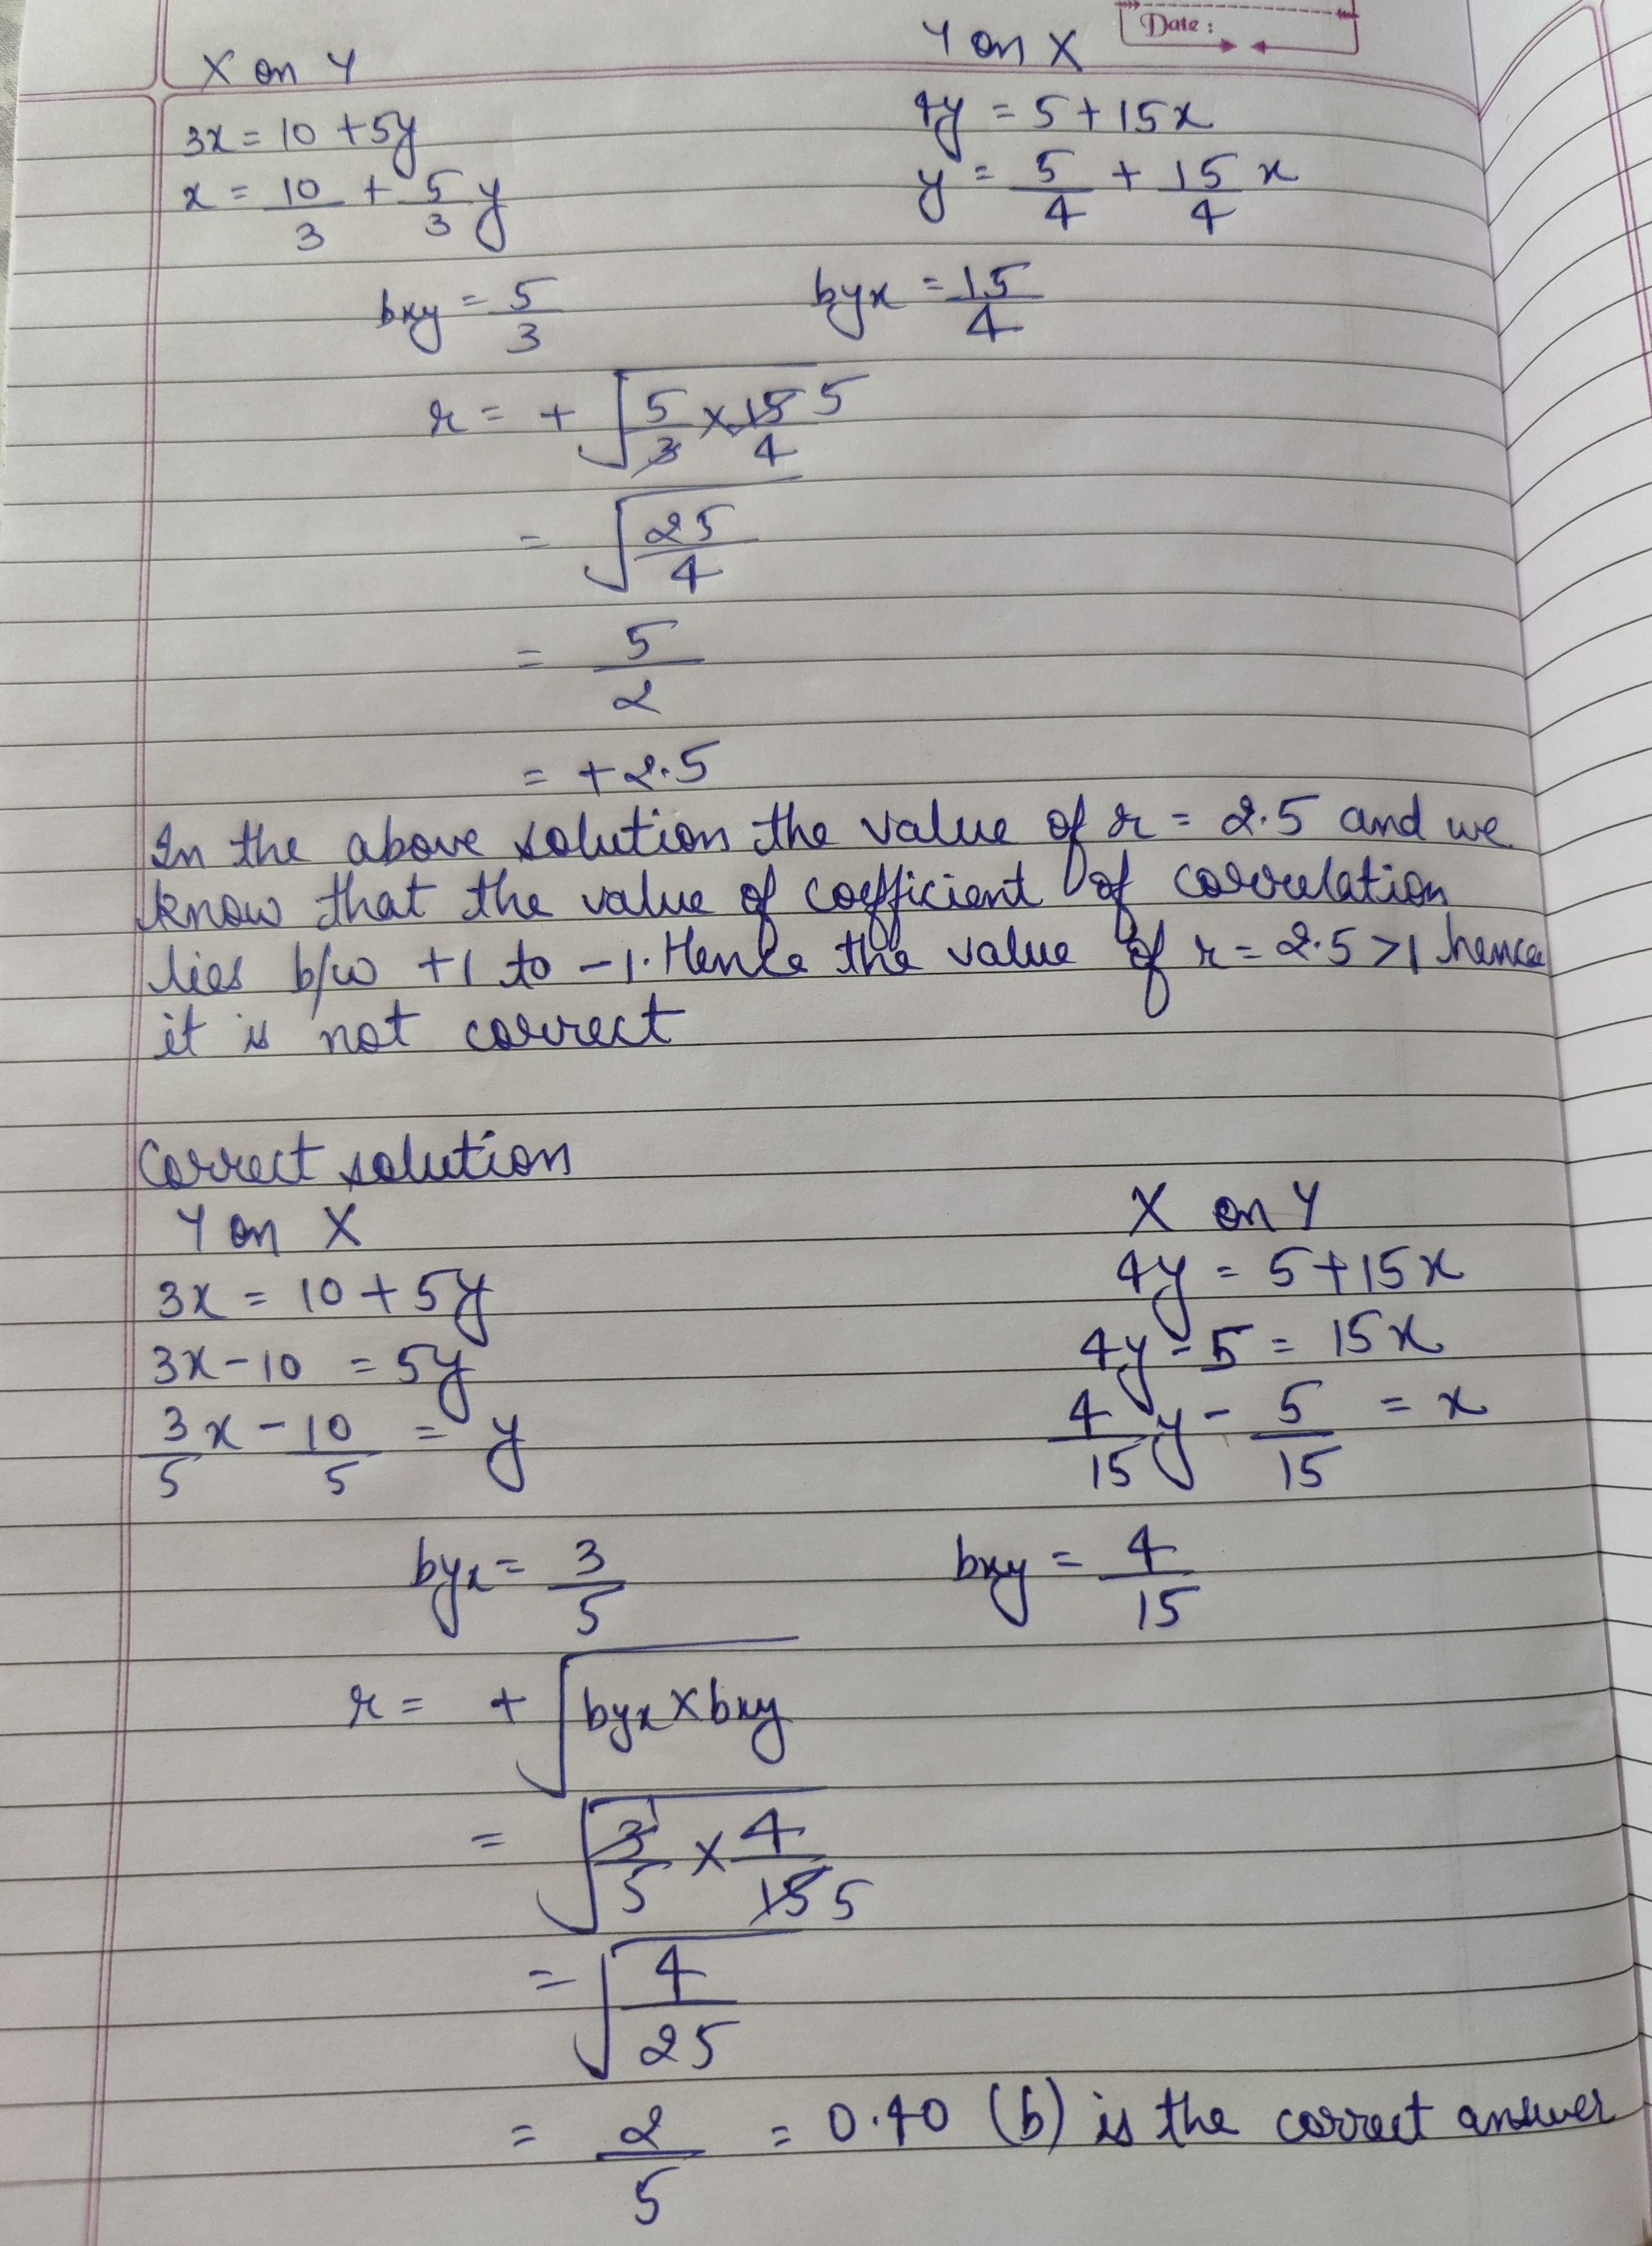 Date :
X on Y Y on X
3x = 10 + 5y 4y = 5 + 15x
x = 10/3 + 5/3 y y = 5/4 + 15/4 x
bxy = 5/3 byx = 15/4
r = + √(5/3 × 15/4) 5
= √(25/4)
= 5/2
= +2.5
In the above solution the value of r = 2.5 and we
know that the value of coefficient of correlation
lies b/w +1 to -1. Hence the value of r = 2.5 > 1 hence
it is not correct
Correct solution
Y on X X on Y
3x = 10 + 5y 4y = 5 + 15x
3x - 10 = 5y 4y - 5 = 15x
3/5 x - 10/5 = y 4/15 y - 5/15 = x
byx = 3/5 bxy = 4/15
r = + √(byx × bxy)
= √(3/5 × 4/15) 1 5
= √(4/25)
= 2/5 = 0.40 (b) is the correct answer